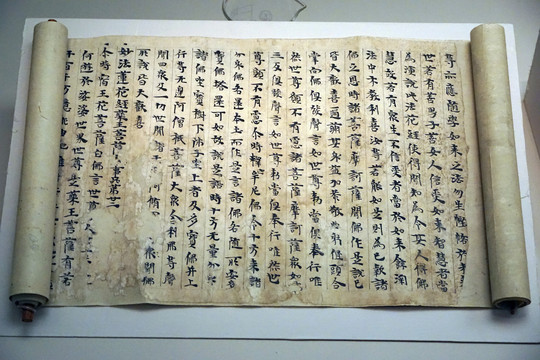 等亦應隨學如來之法勿生慳悋於
世若有善男子善女人信受如來智慧者當
為演說此法花經使得聞知為令其人得佛
慧故若有衆生不信受者當於如來餘深
法中示教利喜汝等若能如是則為已報諸
佛之恩時諸菩薩摩訶薩聞佛作是說已
皆大歡喜遍滿其身益加恭敬曲躬低頭合
掌向佛俱發聲言如世尊勅當具奉行唯
然世尊願不有慮諸菩薩摩訶薩衆如是
三反俱發聲言如世尊勅當具奉行唯然世
尊願不有慮尒時釋迦牟尼佛令十方來諸
分身佛各還本土而作是言諸佛各隨所安多
寶佛塔還可如故說是語時十方无量分身
諸佛坐寶樹下師子座上者及多寶佛并上
行等无邊阿僧祇菩薩大衆舍利弗等聲
聞四衆及一切世間天人阿脩聞佛
所說皆大歡喜
妙法蓮花經藥王菩薩本事品第廿三
尒時宿王花菩薩白佛言世尊
何遊於娑婆世界世尊是藥王菩薩有若
千万億那由他